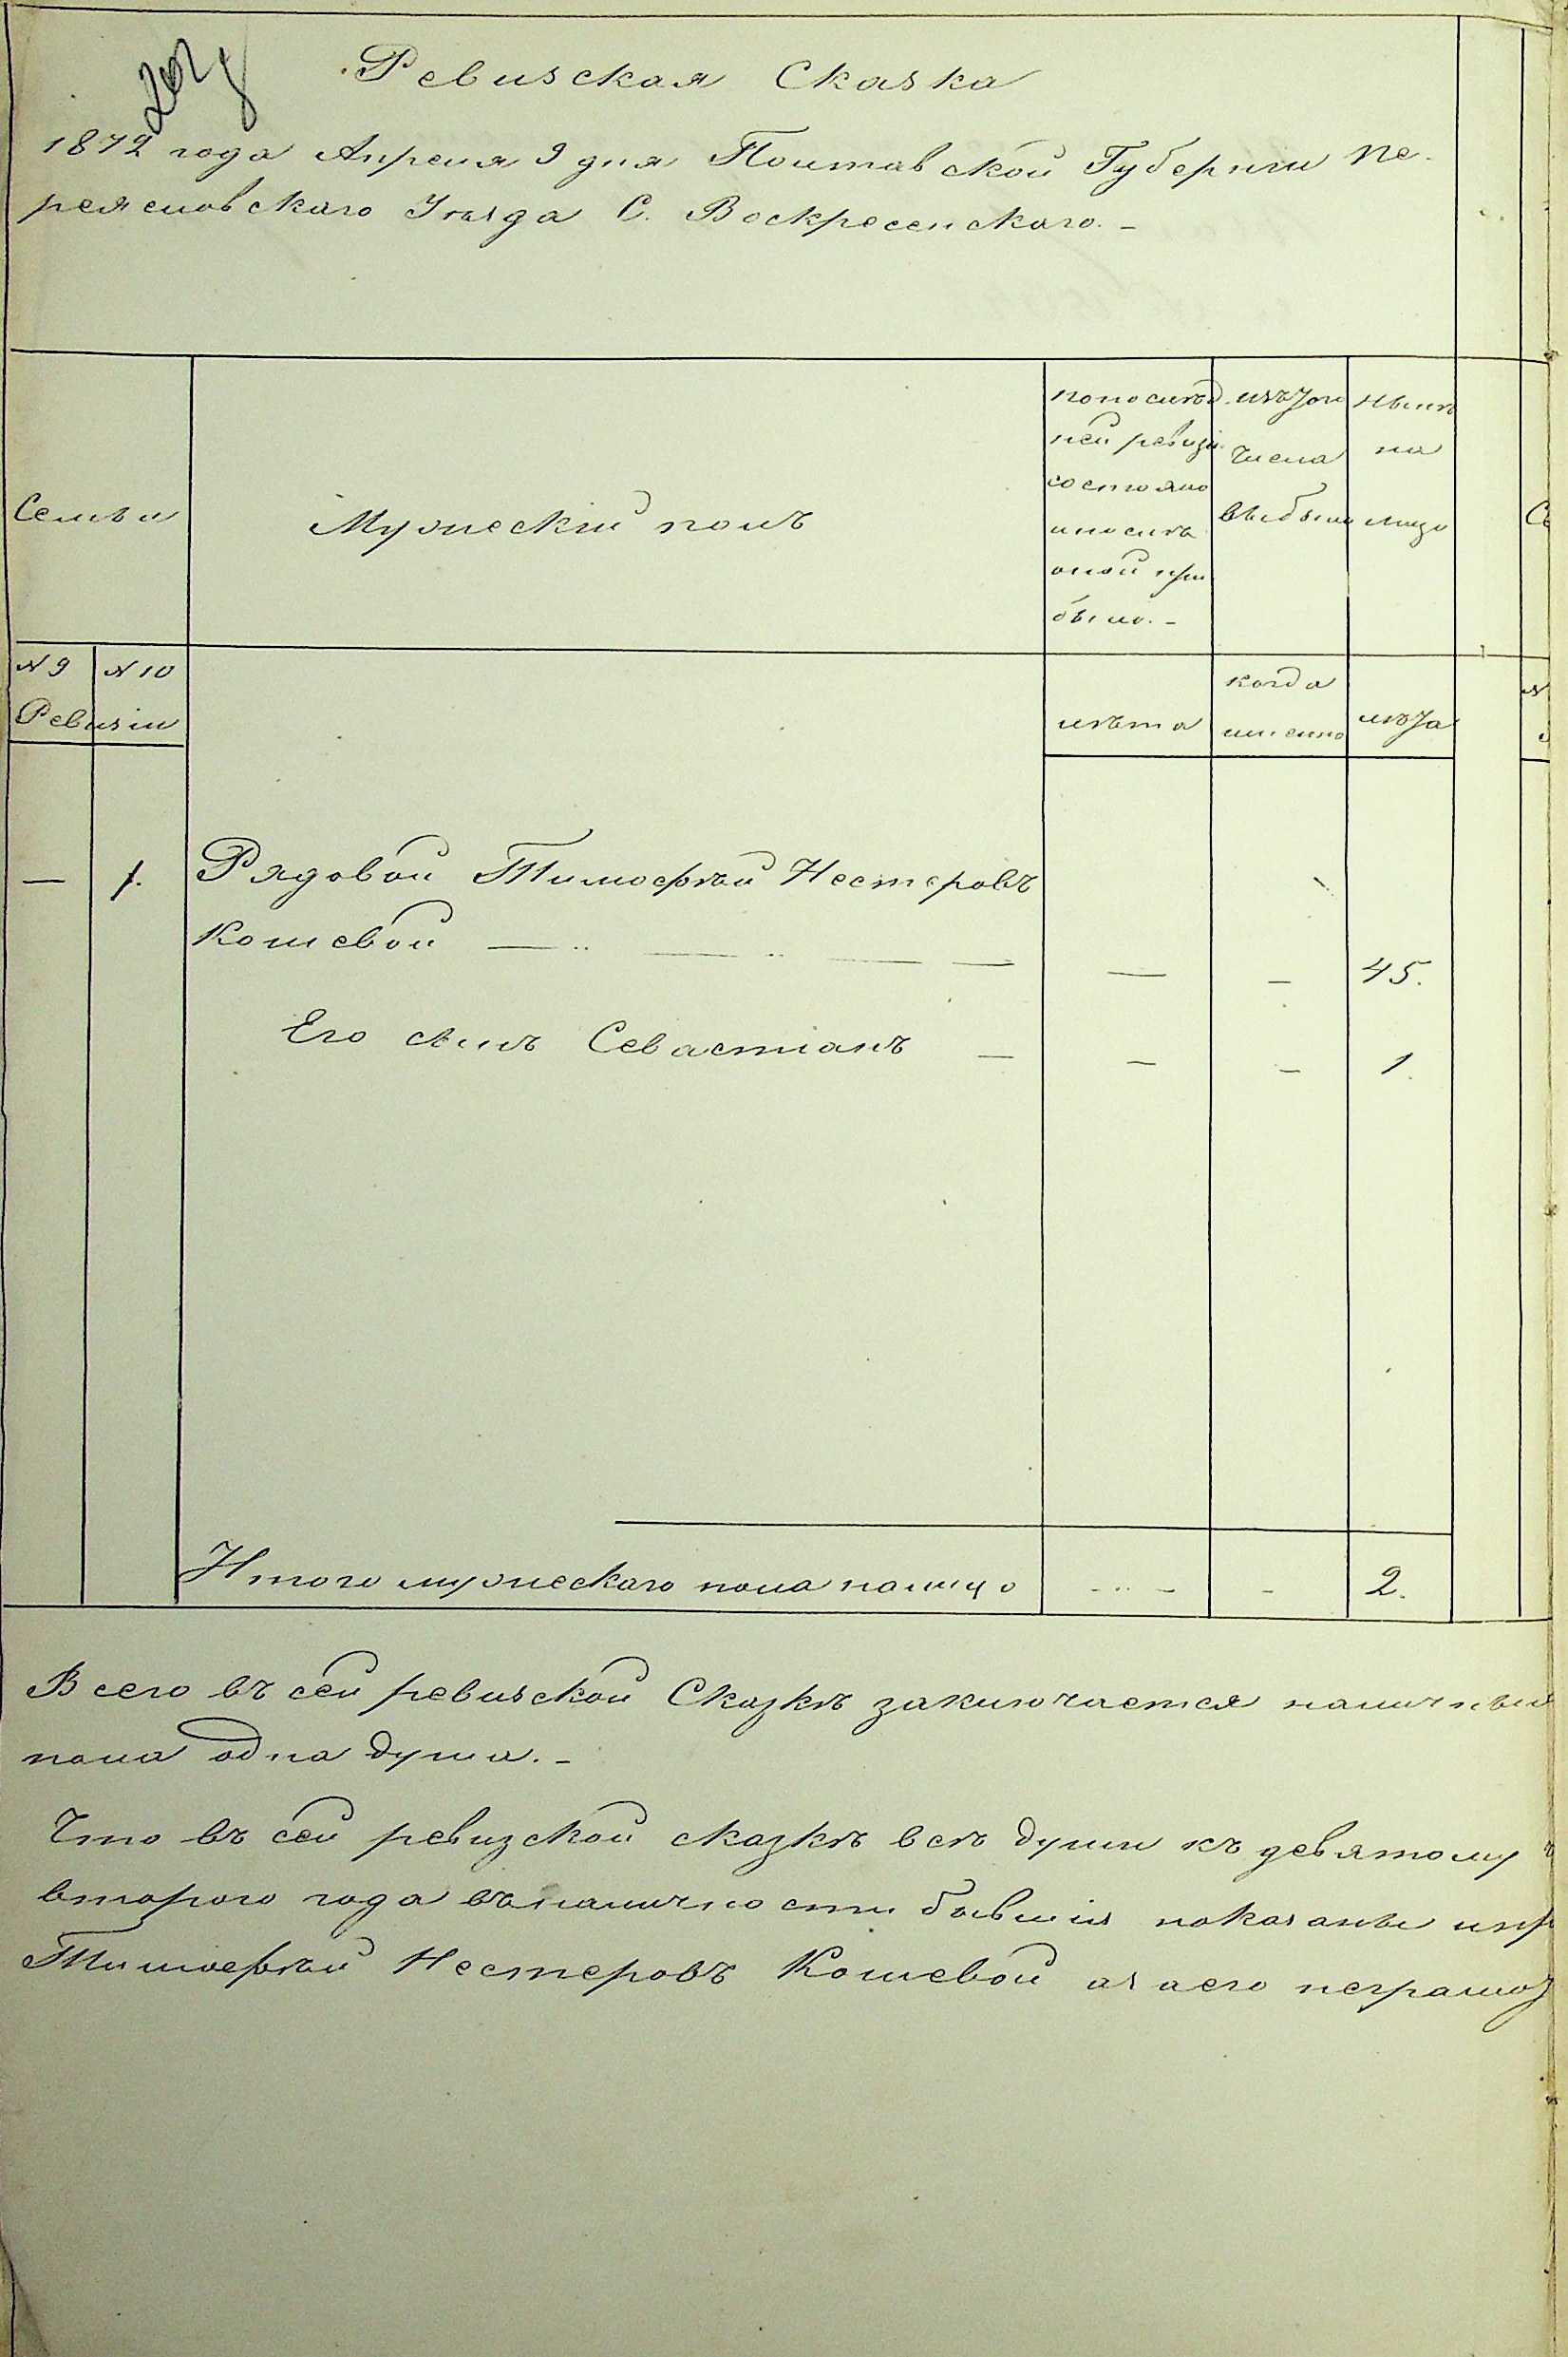 Ревизская Сказка
1872 года Апреля 9 дня Полтавской Губернии Пе-
реяславскаго Уѣзда С. Воскресенскаго. -
Семьи
Мужескій полъ
попослѣд
ней ревизіи
состояло
ипослѣ
оной при
было. -
изътого
числа
выбыло
нынѣ
на
лицо
N 9
N 10
Ревизіи
лѣта
когда
именно
лѣта
— 1. Рядовой Тимофѣй Нестеровъ
Кошевой — — — — — — 45.
Его сынъ Севастіанъ — — — 1.
Итого мужескаго пола налицо - - - 2.
Всего въ сей ревизской Сказкѣ заключается наличныя
пола одна душа. -
Что въ сей ревизской сказкѣ всѣ души къ девятому
второго года вналичности бывшія показаны ипр
Тимофѣй Нестеровъ Кошевой азаего неграмот